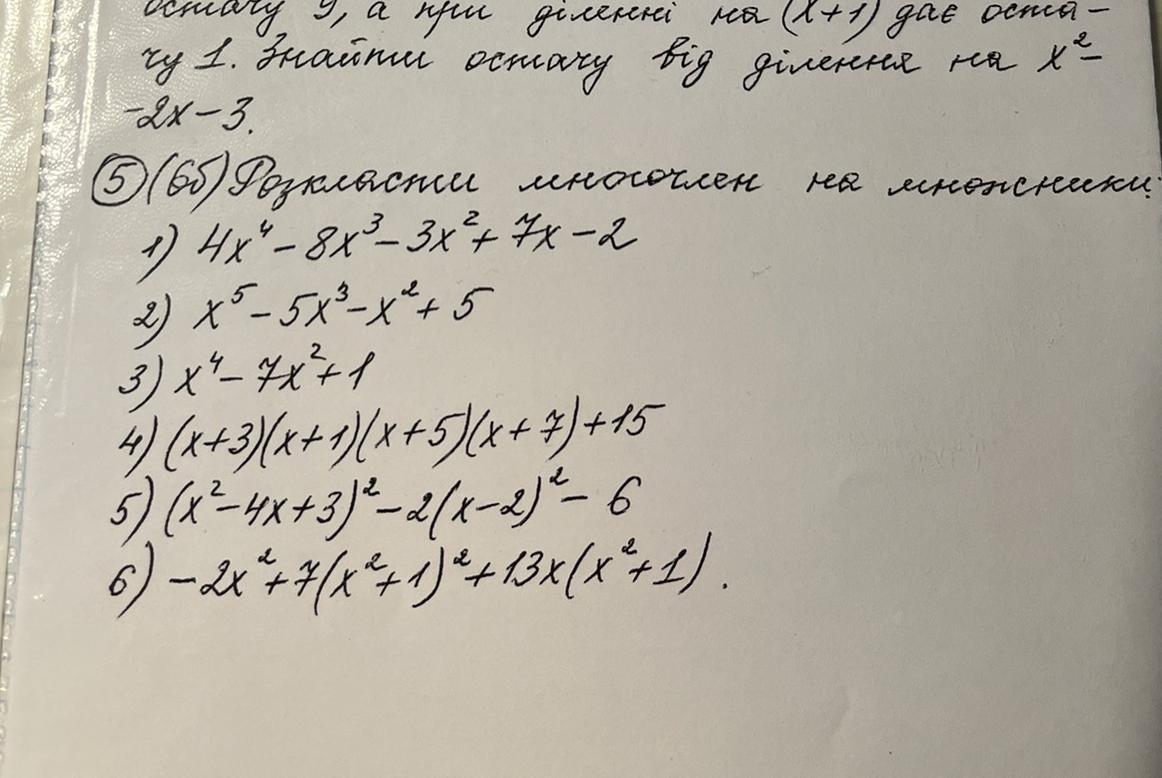 остачу 9, а при діленні на (x+1) дає оста-
чу 1. Знайти остачу від ділення на x²-
-2x-3.
⑤(6б) Розкласти многочлен на множники:
1) 4x⁴-8x³-3x²+7x-2
2) x⁵-5x³-x²+5
3) x⁴-7x²+1
4) (x+3)(x+1)(x+5)(x+7)+15
5) (x²-4x+3)²-2(x-2)²-6
6) -2x²+7(x²+1)²+13x(x²+1).